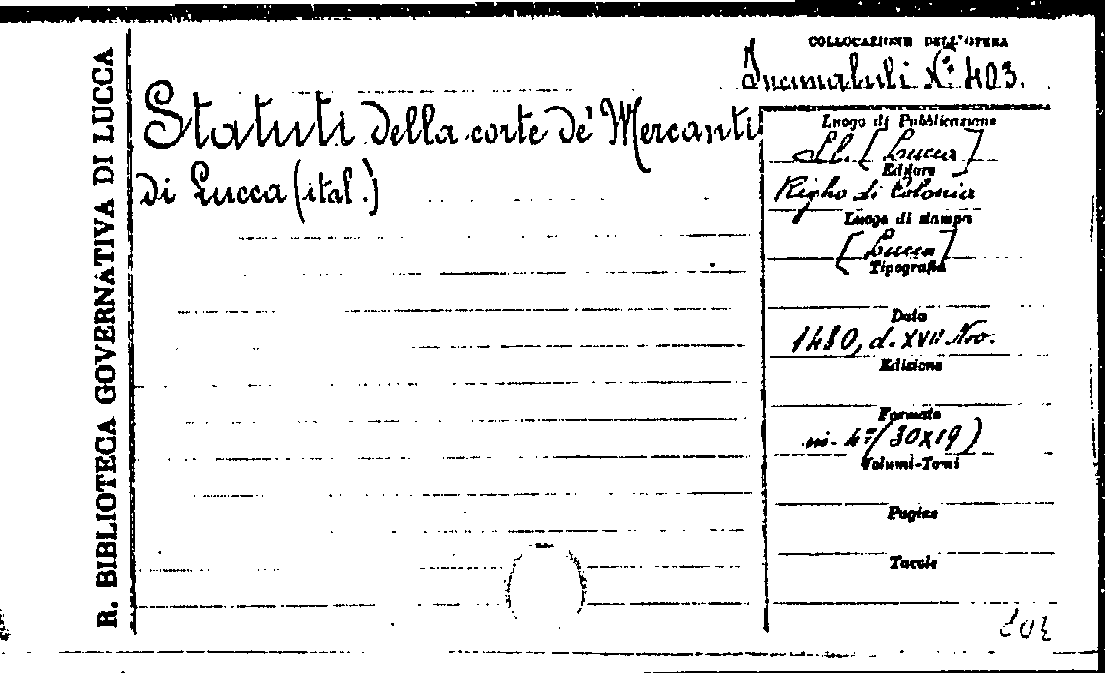 R. BIBLIOTECA GOVERNATIVA DI LUCCA
COLLOCAZIONE DELL'OPERA
Incunabuli N.° 403.
Statuti della corte de' Mercanti
di Lucca (ital.)
Luogo di Pubblicazione
[Lucca]
Editore
Righo di Colonia
Luogo di stampa
[Lucca]
Tipografia
Data
1480, d. XVII Nov.
Edizione
Formato
in-4° (30x19)
Volumi-Tomi
Pagine
Tavole